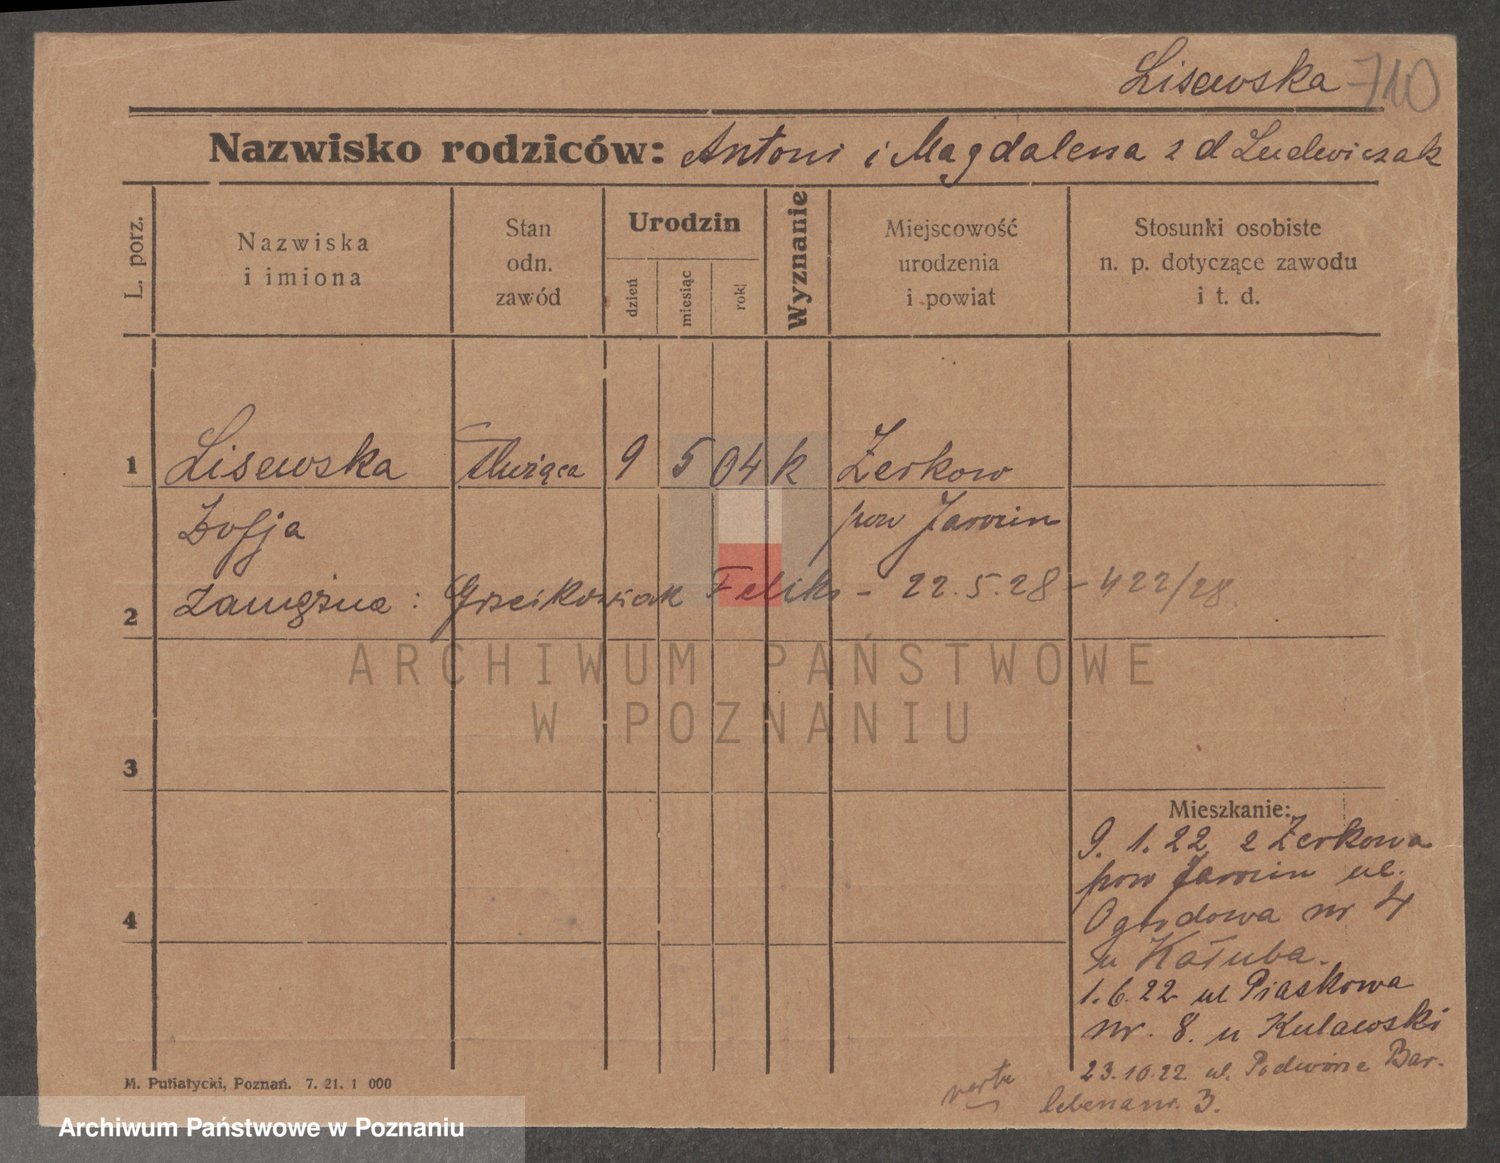 Lisewska 710
Nazwisko rodziców: Antoni i Magdalena z d Ludwiczak
L. porz.
Nazwiska
i imiona
Stan
odn.
zawód
Urodzin
dzień
miesiąc
rok
Wyznanie
Miejscowość
urodzenia
i powiat
Stosunki osobiste
n. p. dotyczące zawodu
i t. d.
1 Lisewska Służąca 9 5 04 k Żerkow
Zofja pow Jarocin
2 zamężna: Grzeikowiak Feliks - 22.5.28 - 422/28
ARCHIWUM PAŃSTWOWE
W POZNANIU
3
Mieszkanie:
9. 1. 22 z Żerkowa
pow Jarocin ul.
4 Ogrodowa nr 4
u Kałuba.
1.6.22 ul Piaskowa
nr. 8. u Kulawski
23.10.22 ul. Bar-
verte nr. 3.
M. Putiatycki, Poznań. 7. 21. 1 000
Archiwum Państwowe w Poznaniu